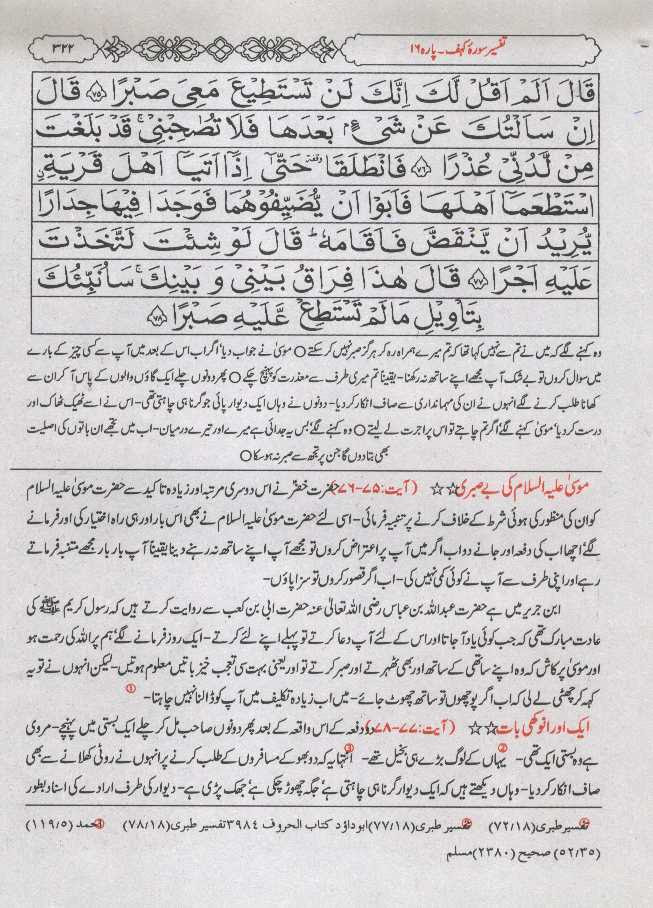 تفسیر سورۂ کہف۔ پارہ ۱۶
۳۲۲
قَالَ اَلَمْ اَقُلْ لَّكَ اِنَّكَ لَنْ تَسْتَطِيْعَ مَعِيَ صَبْرًا ﴿۷۵﴾ قَالَ
اِنْ سَاَلْتُكَ عَنْ شَيْءٍۭ بَعْدَهَا فَلَا تُصٰحِبْنِيْ ۚ قَدْ بَلَغْتَ
مِنْ لَّدُنِّيْ عُذْرًا ﴿۷۶﴾ فَانْطَلَقَا ۥ وقفة حَتّٰٓى اِذَآ اَتَيَآ اَهْلَ قَرْيَةِ ِۨ
اسْتَطْعَمَآ اَهْلَهَا فَاَبَوْا اَنْ يُّضَيِّفُوْهُمَا فَوَجَدَا فِيْهَا جِدَارًا
يُّرِيْدُ اَنْ يَّنْقَضَّ فَاَقَامَهٗ ؕ قَالَ لَوْ شِئْتَ لَتَّخَذْتَ
عَلَيْهِ اَجْرًا ﴿۷۷﴾ قَالَ هٰذَا فِرَاقُ بَيْنِيْ وَ بَيْنِكَ ۚ سَاُنَبِّئُكَ
بِتَاْوِيْلِ مَا لَمْ تَسْتَطِعْ عَّلَيْهِ صَبْرًا ﴿۷۸﴾
وہ کہنے لگے کہ میں نے تم سے نہیں کہا تھا کہ تم میرے ہمراہ رہ کر ہرگز صبر نہیں کر سکتے ○ موسیٰ نے جواب دیا' اگر اب اس کے بعد میں آپ سے کسی چیز کے بارے
میں سوال کروں تو بے شک آپ مجھے اپنے ساتھ نہ رکھنا- یقیناً تم میری طرف سے معذرت کو پہنچ چکے ○ پھر دونوں چلے ایک گاؤں والوں کے پاس آ کر ان سے
کھانا طلب کرنے لگے انہوں نے ان کی مہمانداری سے صاف انکار کر دیا- دونوں نے وہاں ایک دیوار پائی جو گرنا ہی چاہتی تھی- اس نے اسے ٹھیک ٹھاک اور
درست کر دیا' موسیٰ کہنے لگے' اگر تم چاہتے تو اس پر اجرت لے لیتے ○ وہ کہنے لگے' بس یہ جدائی ہے میرے اور تیرے درمیان- اب میں تجھے ان باتوں کی اصلیت
بھی بتا دوں گا جن پر تجھ سے صبر نہ ہو سکا ○
موسیٰ علیہ السلام کی بے صبری ☆☆ (آیت: ۷۵-۷۶) حضرت خضرؑ نے اس دوسری مرتبہ اور زیادہ تاکید سے حضرت موسیٰ علیہ السلام
کو ان کی منظور کی ہوئی شرط کے خلاف کرنے پر تنبیہ فرمائی- اسی لئے حضرت موسیٰ علیہ السلام نے بھی اس بار اور ہی راہ اختیار کی اور فرمانے
لگے' اچھا اب کی دفعہ اور جانے دو اب اگر میں آپ پر اعتراض کروں تو مجھے آپ اپنے ساتھ نہ رہنے دینا یقیناً آپ بار بار مجھے متنبہ فرماتے
رہے اور اپنی طرف سے آپ نے کوئی کمی نہیں کی- اب اگر قصور کروں تو سزا پاؤں-
ابن جریر میں ہے حضرت عبداللہ بن عباس رضی اللہ تعالیٰ عنہ حضرت ابی بن کعب سے روایت کرتے ہیں کہ رسول کریم ﷺ کی
عادت مبارک تھی کہ جب کوئی یاد آ جاتا اور اس کے لئے آپ دعا کرتے تو پہلے اپنے لئے کرتے- ایک روز فرمانے لگے' ہم پر اللہ کی رحمت ہو
اور موسیٰ پر کاش کہ وہ اپنے ساتھی کے ساتھ اور بھی ٹھہرتے اور صبر کرتے تو اور یعنی بہت سی تعجب خیز باتیں معلوم ہوتیں- لیکن انہوں نے تو یہ
کہہ کر چھٹی لے لی کہ اب اگر پوچھوں تو ساتھ چھوٹ جائے- میں اب زیادہ تکلیف میں آپ کو ڈالنا نہیں چاہتا- ①
ایک اور انوکھی بات ☆☆ (آیت: ۷۷-۷۸) دو دفعہ کے اس واقعہ کے بعد پھر دونوں صاحب مل کر چلے ایک بستی میں پہنچے- مروی
ہے وہ بستی ایک تھی- ② یہاں کے لوگ بڑے ہی بخیل تھے- ③ انتہا یہ کہ دو بھوکے مسافروں کے طلب کرنے پر انہوں نے روٹی کھلانے سے بھی
صاف انکار کر دیا- وہاں دیکھتے ہیں کہ ایک دیوار گرنا ہی چاہتی ہے' جگہ چھوڑ چکی ہے' جھک پڑی ہے- دیوار کی طرف ارادے کی اسناد بطور
تفسیر طبری (۷۲/۱۸) تفسیر طبری (۷۷/۱۸) ابوداؤد کتاب الحروف ۳۹۸۴ تفسیر طبری (۷۸/۱۸) احمد (۱۱۹/۵)
(۵۲/۳۵) صحیح (۲۳۸۰) مسلم